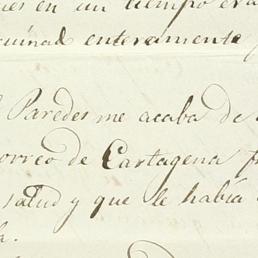 es en un tiempo era
ruinad enteramente
Paredes me acaba de
orreo de Cartagena
salud y que le había
a.